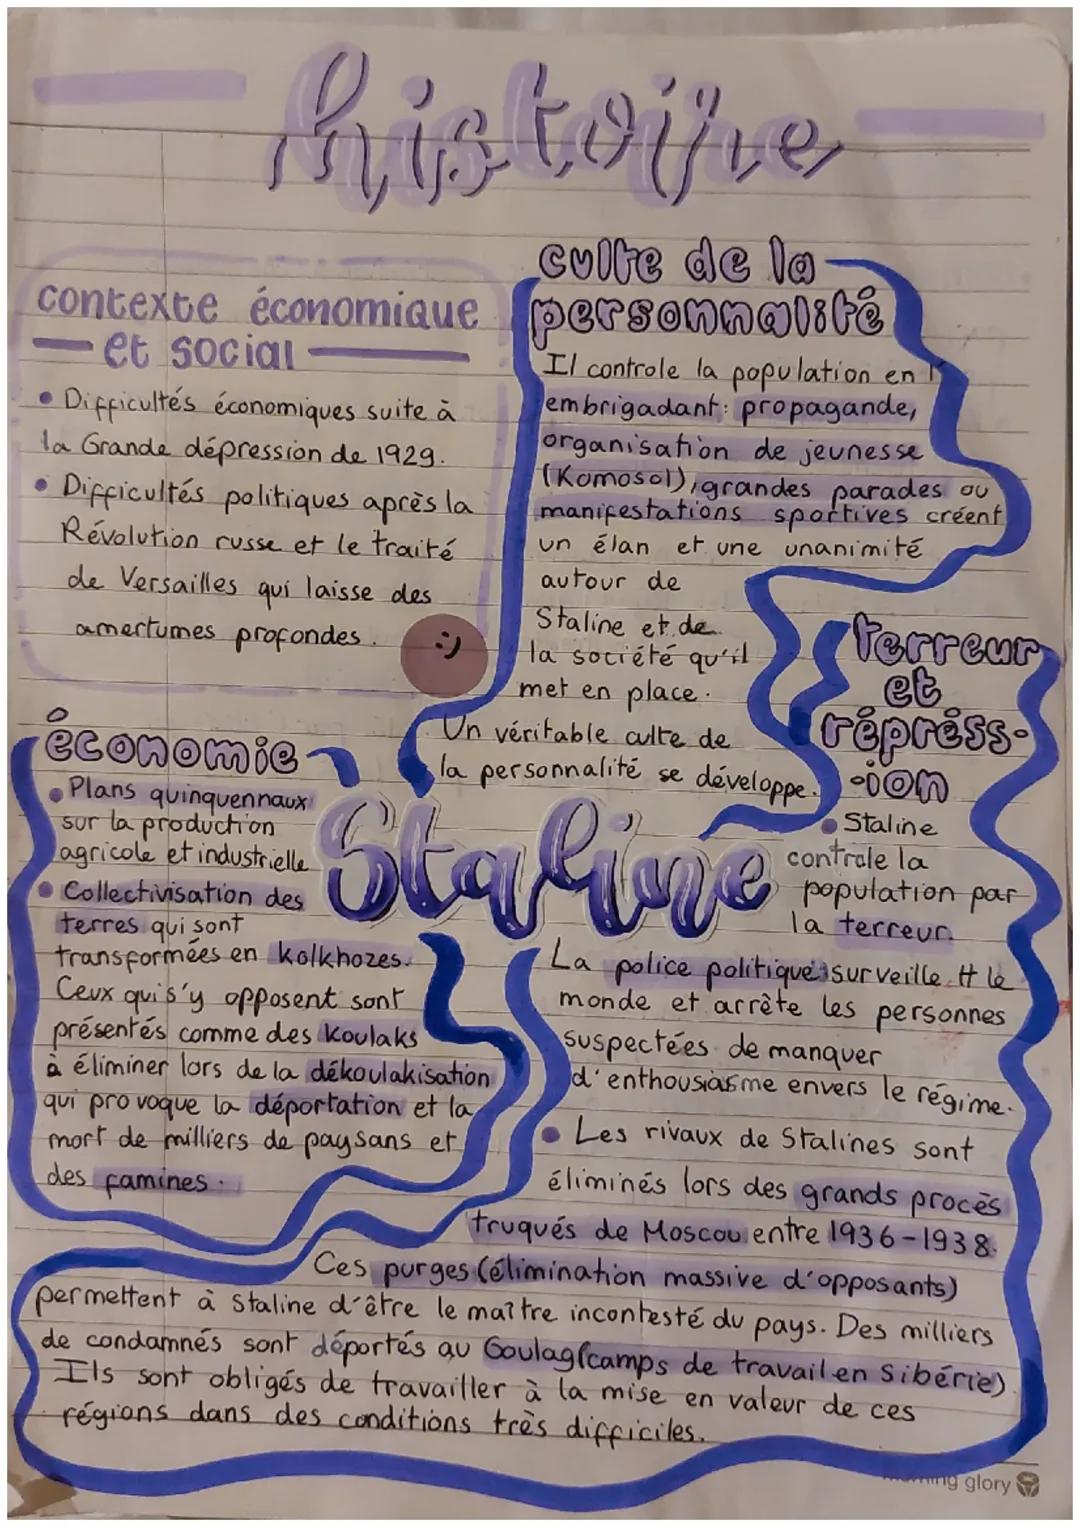 histoire
contexte économique
et social
• Difficultés économiques suite à
la Grande dépression de 1929.
• Difficultés politiques après la
Révolution russe et le traité
de Versailles qui laisse des
amertumes profondes.
:)
culte de la
personnalité
Il controle la population en l'
embrigadant: propagande,
organisation de jeunesse
(Komosol), grandes parades ou
manifestations sportives créent
un élan et une unanimité
autour de
Staline et de
la société qu'il
met en place.
Un véritable culte de
la personnalité se développe.
économie
• Plans quinquennaux
sur la production
agricole et industrielle
• Collectivisation des
terres qui sont
transformées en kolkhozes.
Ceux qui s'y opposent sont
présentés comme des koulaks
à éliminer lors de la dékoulakisation
qui provoque la déportation et la
mort de milliers de paysans et
des famines.
Staline
terreur
et
répréss-
-ion
• Staline
controle la
population par
la terreur.
La police politique surveille tt le
monde et arrête les personnes
suspectées de manquer
d'enthousiasme envers le régime.
• Les rivaux de Stalines sont
éliminés lors des grands procès
truqués de Moscou entre 1936-1938.
Ces purges (élimination massive d'opposants)
permettent à Staline d'être le maître incontesté du pays. Des milliers
de condamnés sont déportés au Goulag (camps de travail en Sibérie)
Ils sont obligés de travailler à la mise en valeur de ces
régions dans des conditions très difficiles.
morning glory